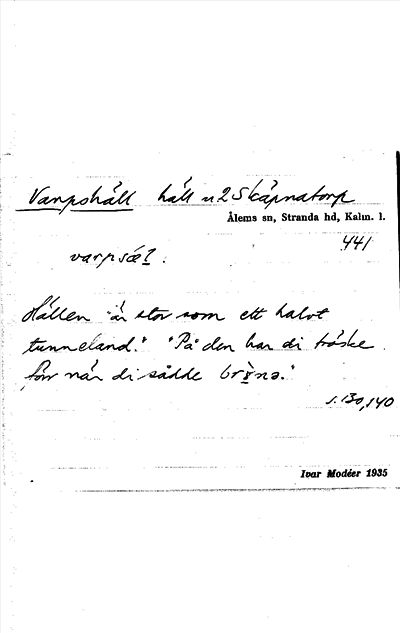 Varpshäll häll n 2 Skäpnatorp
Ålems sn, Stranda hd, Kalm. l.
441
varpsæl.
Hällen är stor som ett halvt
tunneland." "På den har di tröske
förr när di sådde brönə."
s. 130, 140
Ivar Modéer 1935